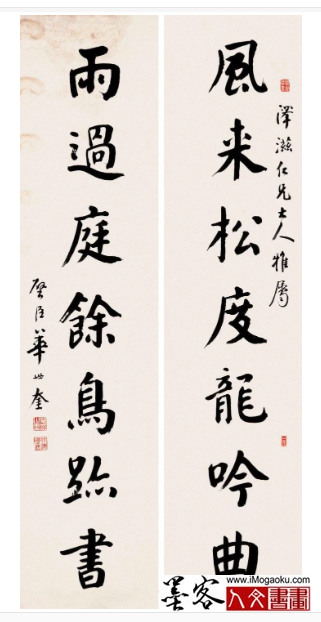 澤滋仁兄大人雅屬
風来松度龍吟曲
雨過庭餘鳥跡書
啓臣華世奎
www.iMogaoku.com
墨客
人文書畫